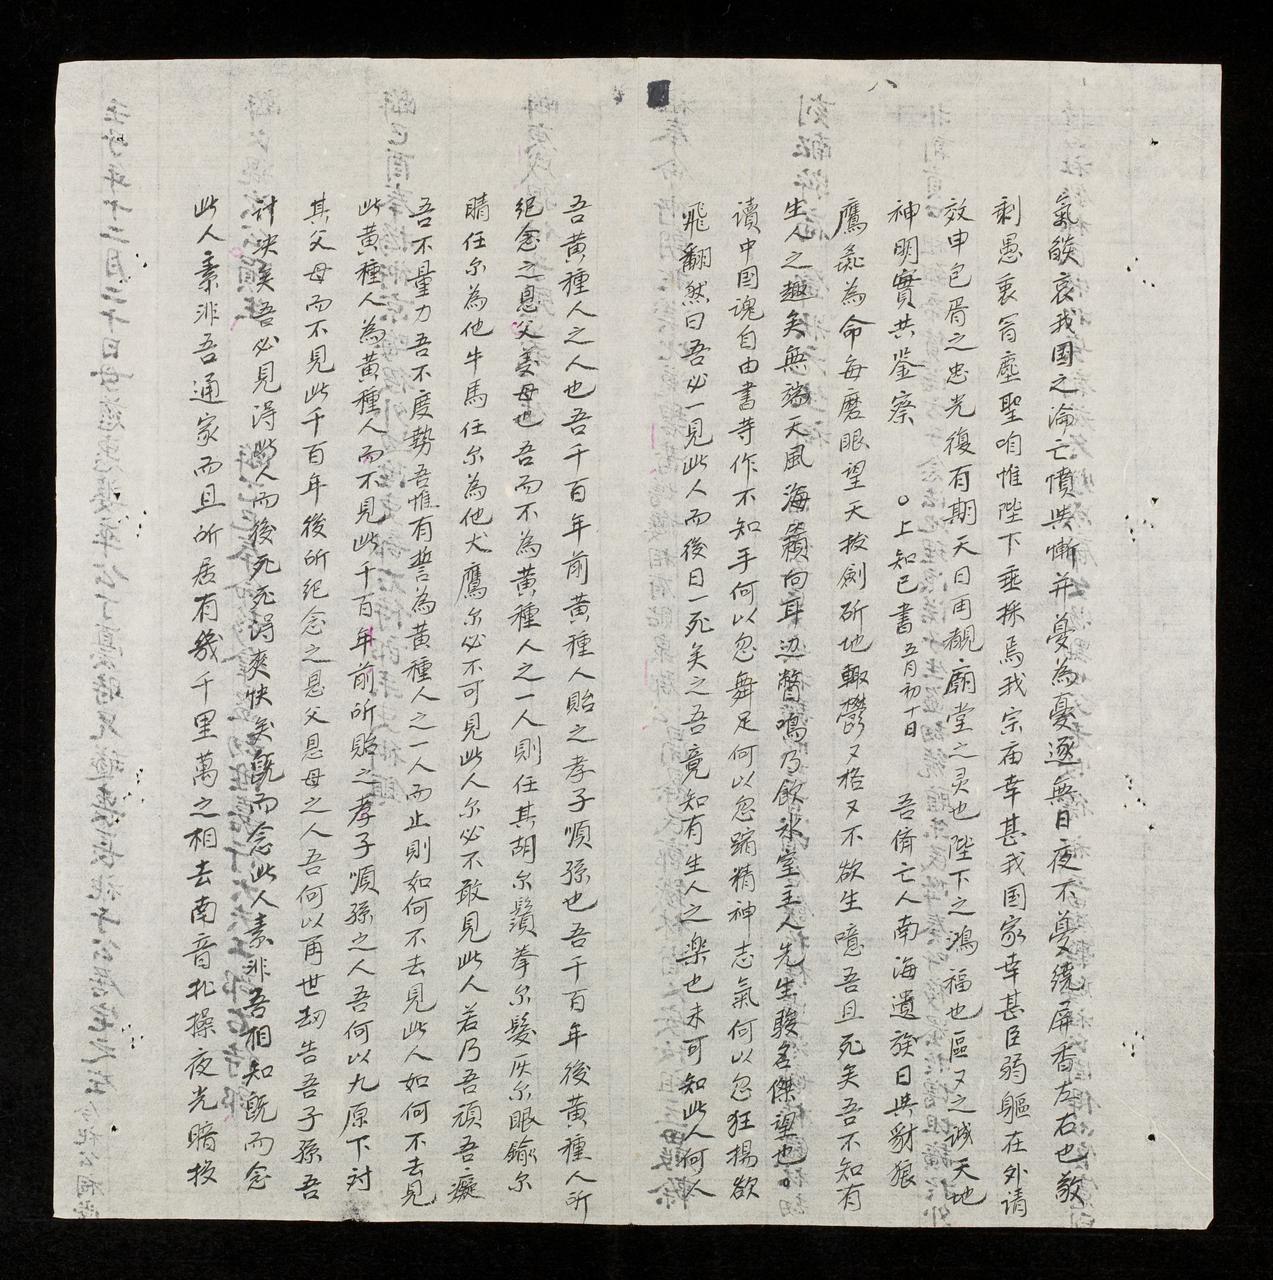 氣欲哀我国之淪亡憤共慚并憂為憂逐無日夜不憂繞屏香左右也敬
剩愚衷冐塵聖咱惟陛下垂採焉我宗庙幸甚我国家幸甚臣弱軀在外请
效申包胥之忠光復有期天日再覩庙堂之灵也陛下之鴻福也區又之誠天地
神明實共鉴察　○上知己書 五月初十日　吾儕亡人南海遺族日與豺狼
鷹彘為命每磨眼望天拔劍斫地輙鬱又格又不欲生噫吾且死矣吾不知有
生人之趣矣無端天風海籟向耳边瞥鳴乃飲氷室主人先生駿名傑望也
讀中国魂自由書䓁作不知手何以忽舞足何以忽蹈精神志氣何以忽狂揚欲
飛翻然曰吾必一見此人而後日一死矣之吾竟知有生人之楽也未可知此人何人
吾黄種人之人也吾千百年前黄種人貽之孝子順孫也吾千百年後黄種人所
纪念之恩父㤙母也吾而不為黄種人之一人則任其胡尔鬚拳尔髮灰尔眼鍮尔
睛任尔為他牛馬任尔為他犬鷹尔必不可見此人尔必不敢見此人若乃吾頑吾癡
吾不量力吾不度勢吾惟有誓為黄種人之一人而止則如何不去見此人如何不去見
此黄種人為黄種人而不見此千百年前所貽之孝子順孫之人吾何以九原下对
其父母而不見此千百年後所纪念之恩父恩母之人吾何以再世刧告吾子孫吾
計决矣吾必見淂此人而後死死淂爽快矣既而念此人素非吾相知既而念
此人素非吾通家而且所居有幾千里萬之相去南音北操夜光暗投